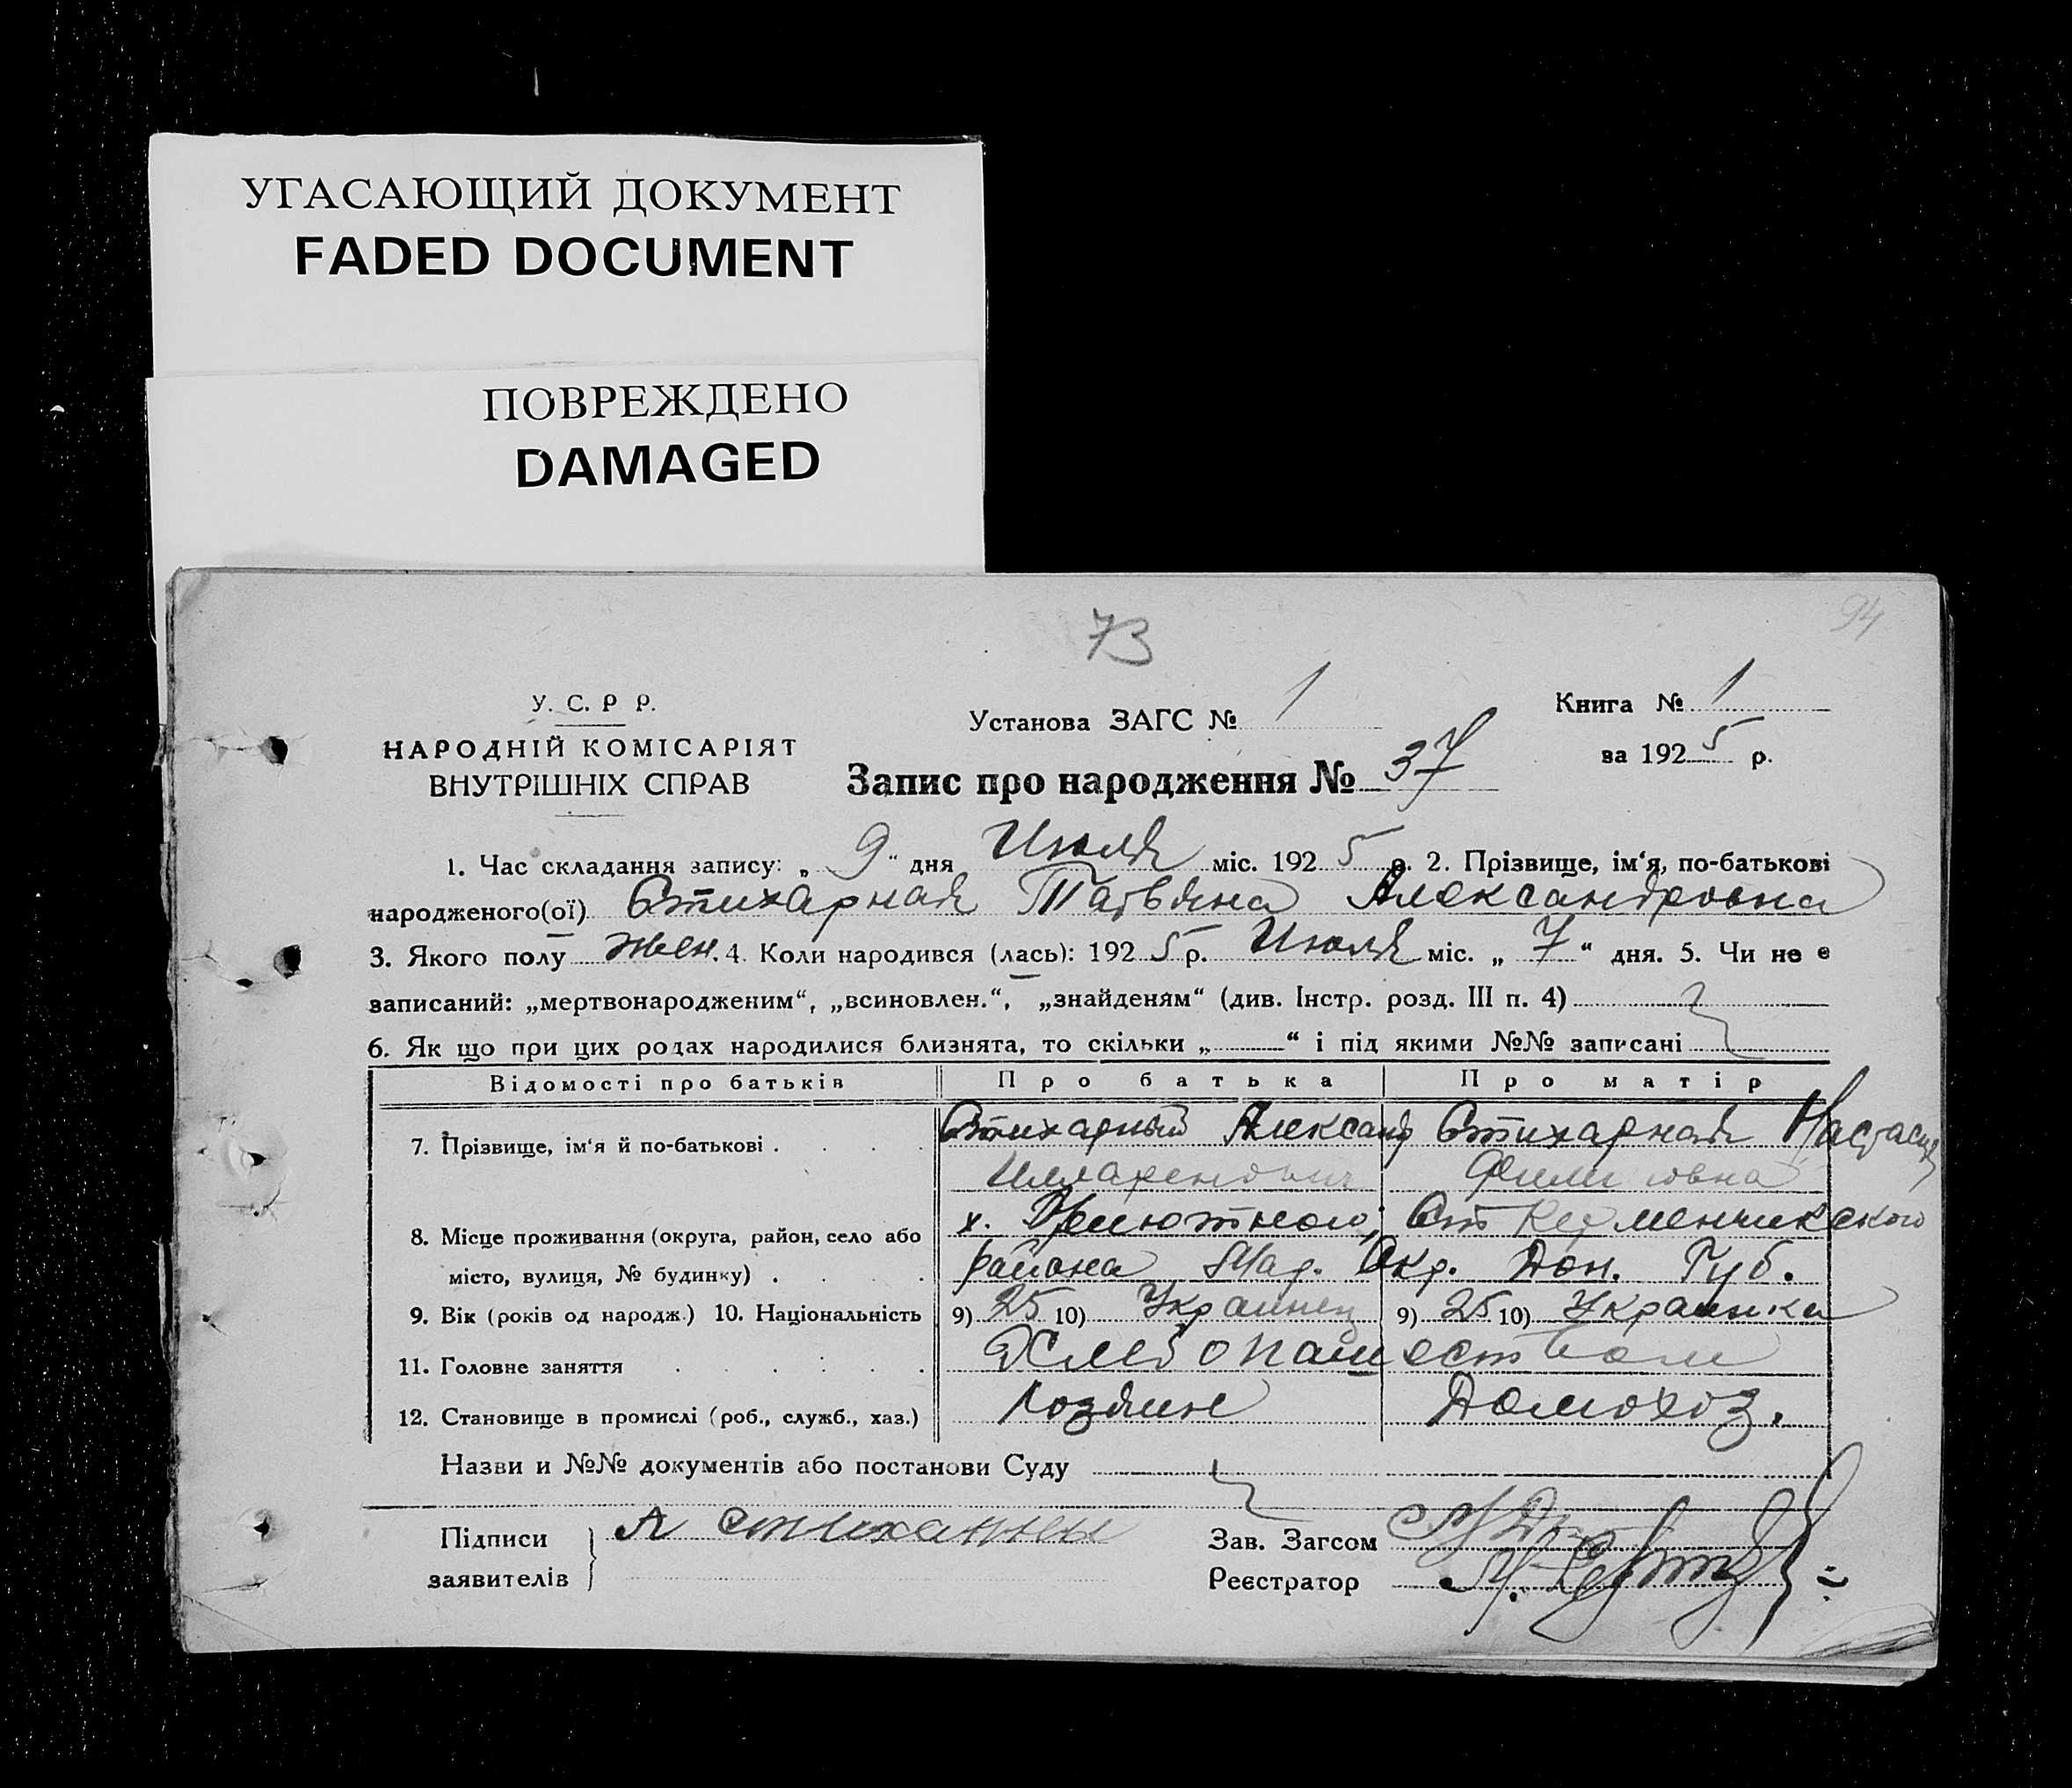 УГАСАЮЩИЙ ДОКУМЕНТ
FADED DOCUMENT
ПОВРЕЖДЕНО
DAMAGED
73
94
У. С. Р Р.
НАРОДНІЙ КОМІСАРІЯТ
ВНУТРІШНІХ СПРАВ
Установа ЗАГС № 1
Запис про народження № 37
Книга № 1
за 1925 р.
1. Час складання запису: „ 9 “ дня Июля міс. 1925 р. 2. Прізвище, ім‘я, по-батькові
народженого(ої) Стихарная Татьяна Александровна
3. Якого полу жен. 4. Коли народився (лась): 1925 р. Июля міс. „ 7 “ дня. 5. Чи не є
записаний: „мертвонародженим“, „всиновлен.“, „знайденям“ (див. Інстр. розд. III п. 4)
6. Як що при цих родах народилися близнята, то скільки „ “ і під якими №№ записані
Відомості про батьків Про батька Про матір
7. Прізвище, ім‘я й по-батькові . . . . Стихарный Александр Стихарная Настасия
Илларенович Филиповна
8. Місце проживання (округа, район, село або х. Приютного, Ст Керменчикского
місто, вулиця, № будинку) . . . . района Мар. Окр. Дон. Губ.
9. Вік (років од народж.) 10. Національність 9) 25 10) Украинец 9) 25 10) Украинка
11. Головне заняття . . . . . . Хлебопашеством
12. Становище в промислі (роб., служб., хаз.) Хозяин Домохоз.
Назви и №№ документів або постанови Суду
Підписи
заявителів
А
Зав. Загсом
Реєстратор